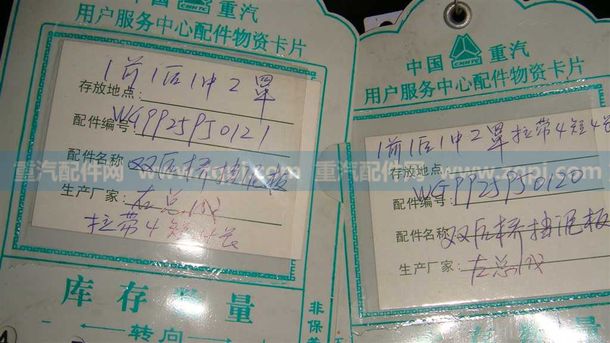 中国 重汽
CNHTC
用户服务中心配件物资卡片
1前1后1中2罩
存放地点:
配件编号: WG9925950121
配件名称 双后桥挡泥板
生产厂家: 左总成
拉带4短4长
库存数量
转向
非保养
中国 重汽
CNHTC
用户服务中心配件物资卡片
1前1后1中2罩拉带4短4长
存放地点:
配件编号: WG9925950120
配件名称: 双后桥挡泥板
生产厂家: 右总成
重汽配件网
重汽配件网 www.zqpj.com